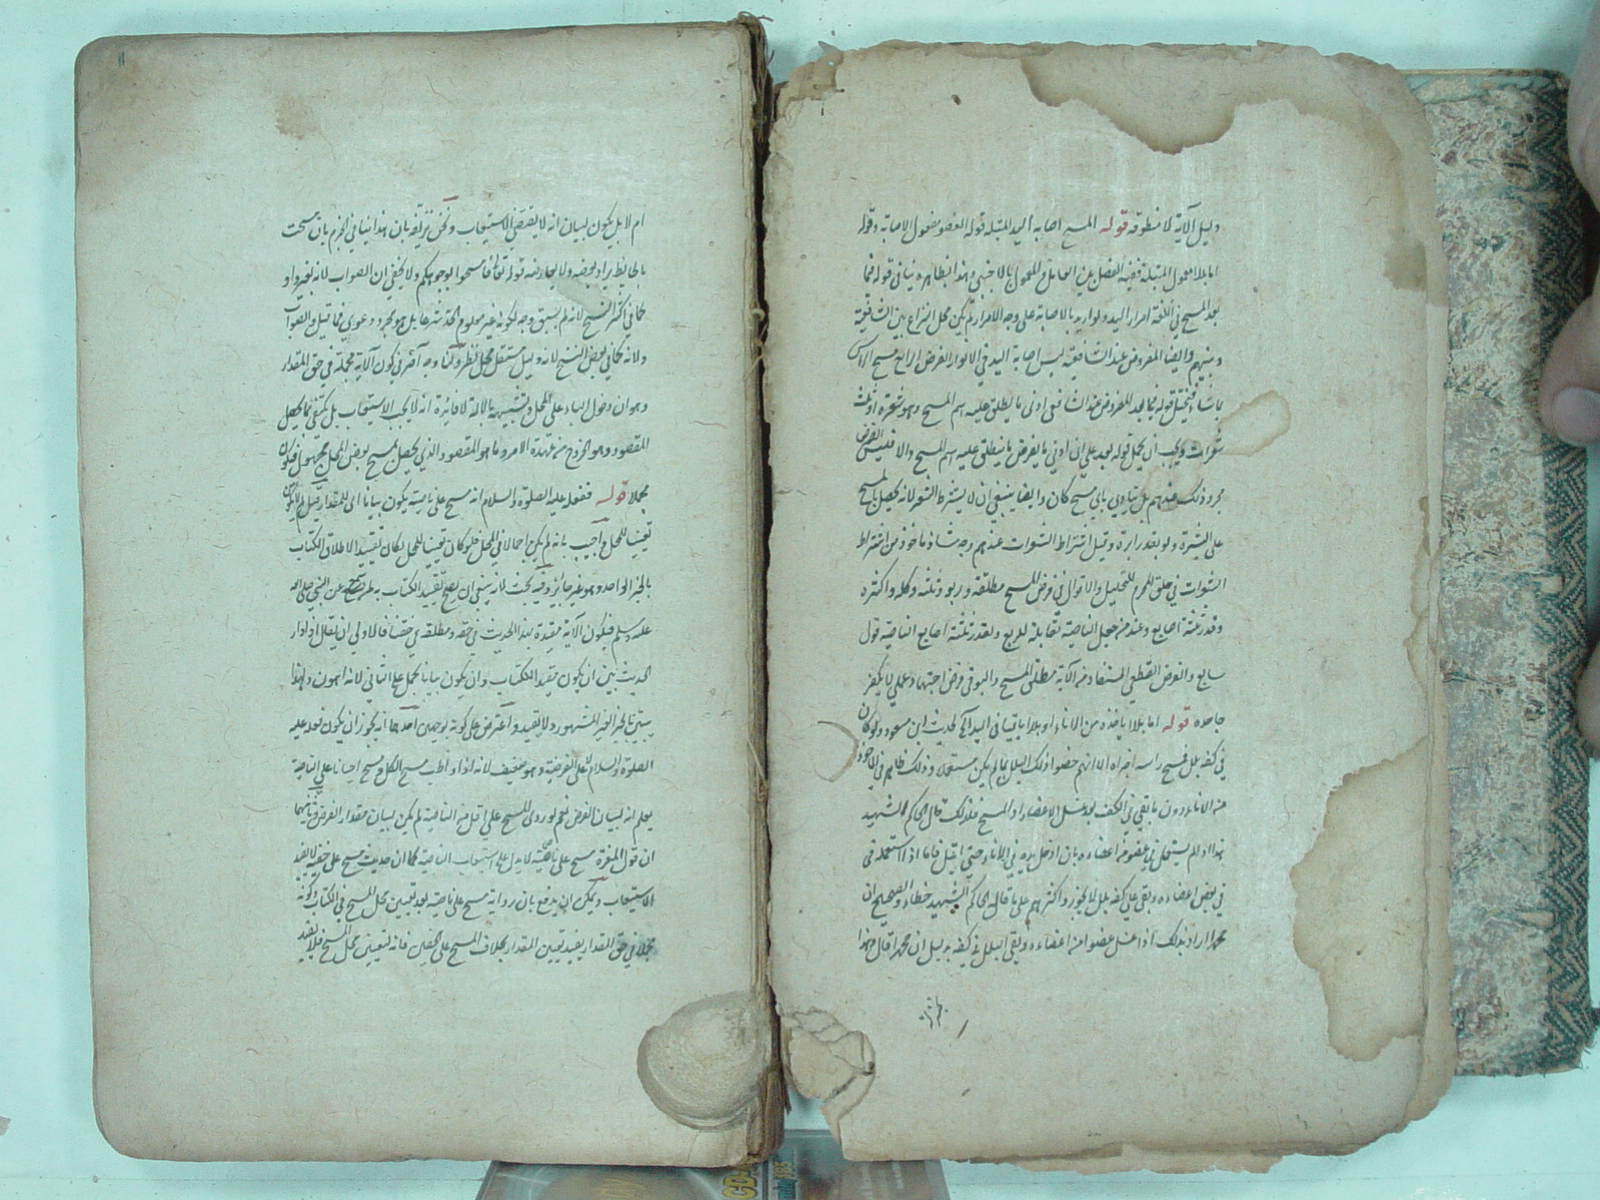 دليل الآية لا منطوقه قوله المسح اصابة اليد المبتلة قوله العضو مفعول الاصابة وقوله
اما بللا مفعول المبتلة ففيه الفصل بين العامل والمعمول بالاجنبي وهذا بظاهره ينافي قوله فيما
بعد المسح في اللغة امرار اليد ولو اريد بالاصابة على وجه الامرار لم يكن محل النزاع بين الشافعية
وبينهم وايضا المفروض عند الشافعية ليس اصابة اليد في الانوار الفرض الرابع مسح الراس
بما شاء قوله فيما بعد المفروض عند الشافعي ادنى ما يطلق عليه اسم المسح وهو شعرة او ثلث
شعرات ويجب ان يحمل قوله بعد على ان ادنى ما يفرض ما ينطلق عليه اسم المسح والا فليس الفرض
مجرد ذلك عندهم بل يتادى باي مسح كان وايضا ينبغي ان لا يشترط الشعر لانه يحصل بالمسح
على البشرة ولو بقدر ابرة وقيل اشتراط الشعرات عندهم وجه شاذ ماخوذ من اشتراط
الشعرات في حلق المحرم للتحليل والاقوال في فرض المسح مطلقه وربعه وثلثه وكله واكثره
وقدر ثلثة اصابع وعند من جعل الناصية مقابلة للربع وبقدر ثلثة اصابع الناصية قول
سابع والفرض القطعي المستفاد من الآية مطلق المسح والبواقي فرض اجتهاد وعملي لا يكفر
جاحده قوله اما بللا ياخذه من الاناء او بللا باقيا في اليد الخ لحديث ابن مسعود ولو كان
في كفه بلل فمسح راسه اجزاه الا انهم خصوا ذلك البلل بما لم يكن مستعملا وذلك ظاهر في الماخوذ
من الاناء دون ما بقي في الكف بعد غسل الاعضاء او المسح فلذلك قال الحاكم الشهيد
هذا اذا لم يستعمل في عضو من اعضاءه بان ادخل يده في الاناء حتى ابتل فاما اذا استعمله في
في بعض اعضاءه وبقي على كفه بلل لا يجوز واكثرهم على ما قاله الحاكم الشهيد خطاء والصحيح ان
محمدا اراد بذلك اذا غسل عضوا من اعضاءه وبقي البلل في كفه بدليل ان محمدا قال هذا
ام لا بل يكون لبيان انه لا يقتضي الاستيعاب ويمكن تزييفه بان هذا ينافي الجزم بان مسحت
بالحايط يراد بعضه ولا يعارضه قوله تعالى فامسحوا بوجوهكم ولا يخفى ان الصواب لانه بغير واو
كما في اكثر النسخ لانه لم يسبق وجه لكونه غير معلوم الحد بل هو مجرد دعوى فما قيل والصواب
ولانه كما في بعض النسخ لانه دليل مستقل محل نظر ولنا وجه آخر في كون الآية مجملة في حق المقدار
وهو ان دخول الباء على المحل وتشبيهه بالآلة لافائدة انه لا يجب الاستيعاب بل يكتفي بما يحصل
المقصود وهو الخروج من عهدة الامر وما هو المقصود الذي يحصل بمسح بعض المحل مجهول فيكون
مجملا قوله ففعله عليه الصلوة والسلام انه مسح على ناصيته يكون بيانا اي للمقدار قيل لم لا يكون
تعيينا للمحل واجيب بانه لم يكن اجمالا في المحل فلو كان تعيينا للمحل لكان تقييد الاطلاق الكتاب
بالخبر الواحد وهو غير جائز وفيه بحث لانه ينبغي ان يصلح تقييد الكتاب به لم صح عن النبي صلى الله
عليه وسلم فيكون الآية مقيدة بهذا الحديث في حقه ومطلقة في حقنا فالاولى ان يقال اذا دار
الحديث بين ان يكون مقيد الكتاب وان يكون بيانا يحمل على الثاني لانه اهون ولهذا
يبتني بالخبر الغير المشهور ولا يقيد واعترض على كونه بوجهين احدهما انه يجوز ان يكون فعله عليه
الصلوة والسلام لا على الفرضية وهو ضعيف لانه اذا واظب مسح الكل ومسح احيانا على الناصية
يعلم انه لبيان الفرض نعم لو روى المسح على اقل من الناصية لم يكن لبيان مقدار الفرض وثانيهما
ان قول المغيرة مسح على ناصيته لا يدل على استيعاب الناصية كما ان حديث مسح على خفيه لا يفيد
الاستيعاب ويمكن ان يدفع بان رواية مسح على ناصيته بعد تعيين محل المسح في الكتاب وكونه
مجملا في حق المقدار يفيد تعيين المقدار بخلاف المسح على الخفين فانه لتعيين محل المسح فلا يفيد